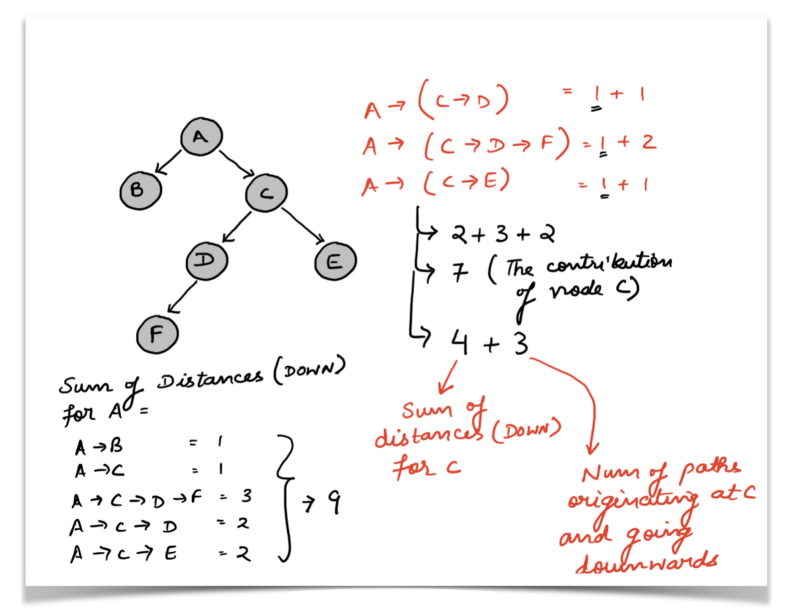 A
B
C
D
E
F
A → (C → D) = 1 + 1
A → (C → D → F) = 1 + 2
A → (C → E) = 1 + 1
2 + 3 + 2
7 (The contribution
of node C)
4 + 3
Sum of
distances (DOWN)
for C
Num of paths
originating at C
and going
downwards
Sum of Distances (DOWN)
for A =
A → B = 1
A → C = 1
A → C → D → F = 3
A → C → D = 2
A → C → E = 2
→ 9